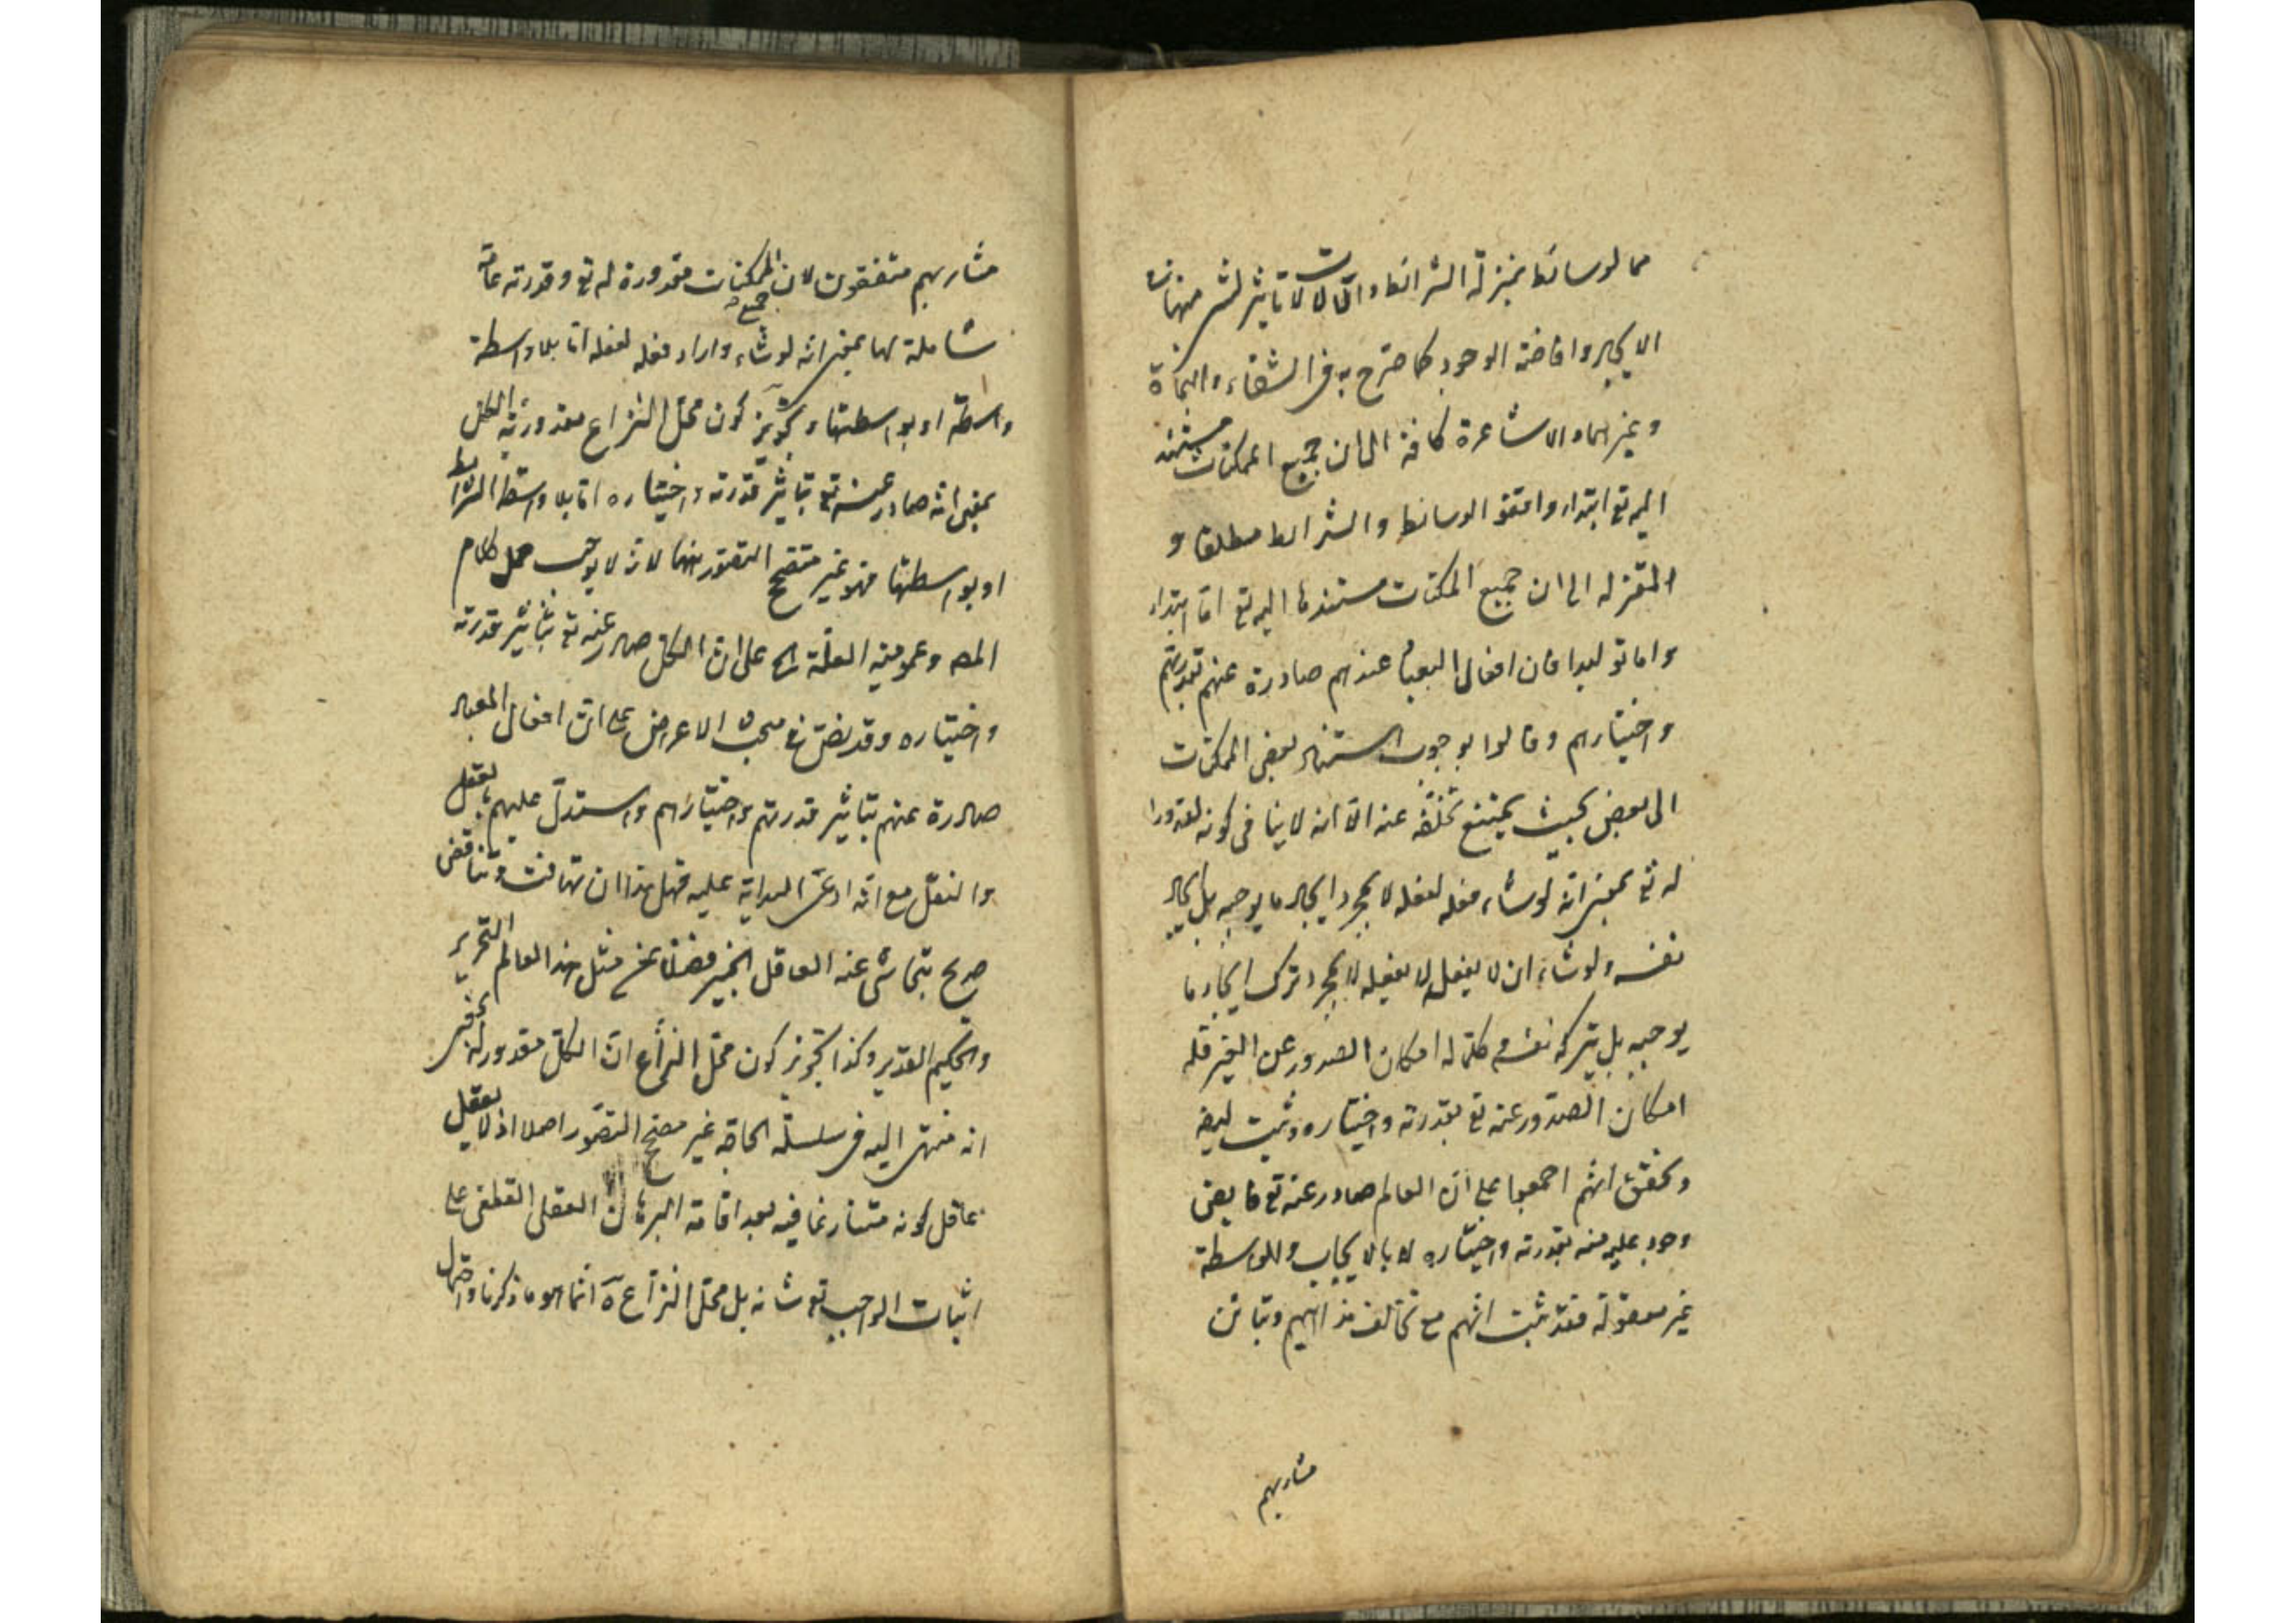 مما لوسائط بمنزلة الشرائط والآلات لا تاثير لشئ منها فى
الايجاد وافاضة الوجود كما صرح به فى الشفاء والنجاة
وغيرهما والاشاعرة كافة الى ان جميع الممكنات مستند
اليه تع ابتداء وانتفو الوسائط والشرائط مطلقا و
المعتزله الى ان جميع الممكنات مستندها اليه تع اما ابتداء
واما توليدا فان افعال العباد عندهم صادرة عنهم بقدرتهم
واختيارهم وقالوا بوجوب استناد بعض الممكنات
الى بعض بحيث يمتنع تخلفه عنه الا انه لا ينافى كونه مقدورا
له تع بمعنى انه لو شاء فعله لفعله لا بمجرد ايجاد ما يوجبه بل بايجاد
نفسه ولو شاء ان لا يفعله لا يفعله لا بمجرد ترك ايجاد ما
يوجبه بل بتركه نفسه فكلما له امكان الصدور عن الغير فله
امكان الصدور عنه تع بقدرته واختياره وثبت ايضه
وتحقق انهم اجمعوا على ان العالم صادر عنه تع فايض
وجود عليه منه بقدرته واختياره لا بالايجاب والواسطة
غير معقولة فقد ثبت انهم مع تخالف مذاهبهم وتباين
مشاربهم
مشاربهم متفقون لان جميع الممكنات مقدورة له تع وقدرته عامة
شاملة لها بمعنى انه لو شاء واراد فعله لفعله اما بلا واسطة
واسطة او بواسطتها وتجويز كون محل النزاع مقدورية الكل
بمعنى انه صادر عنه تع بتاثير قدرته واختياره اما بلا واسطة الشرائط
او بواسطتها فهو غير متضح التصور ايضا لانه لا يوجب حمل كلام
المصـ وعمومية العلة الخ على ان الكل صادر عنه تع بتاثير قدرته
واختياره وقد نص فى مبحث الاعراض على ان افعال العباد
صادرة عنهم بتاثير قدرتهم واختيارهم واستدل عليهم بالعقل
والنقل مع انه ادعى البداهة عليه فهل هذا ان تهافت وتناقض
صريح يتحاشى عنه العاقل الخبير فضلا عن مثل هذا العالم النحرير
والحكيم القدير وكذا تجويز كون محل النزاع ان الكل مقدور له بمعنى
انه منتهى اليه فى سلسلة الحاجة غير متضح التصور اصلا اذ لا يعقل
عاقل كونه متنازعا فيه بعد اقامة البرهان العقلى القطعى على
اثبات الواجب تع شانه بل محل النزاع آه انما هو ما ذكرنا واحتمال